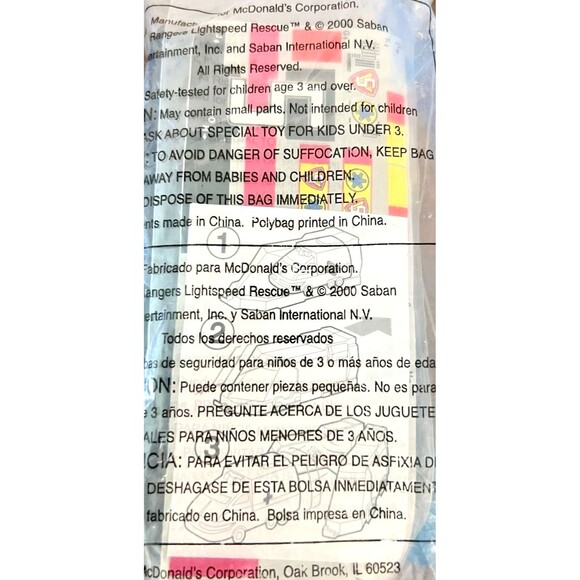 for McDonald's Corporation.
Rangers Lightspeed Rescue™ & © 2000 Saban
ertainment, Inc. and Saban International N.V.
All Rights Reserved.
Safety-tested for children age 3 and over.
N: May contain small parts. Not intended for children
ASK ABOUT SPECIAL TOY FOR KIDS UNDER 3.
: TO AVOID DANGER OF SUFFOCATION, KEEP BAG
AWAY FROM BABIES AND CHILDREN.
DISPOSE OF THIS BAG IMMEDIATELY.
nts made in China. Polybag printed in China.
1
Fabricado para McDonald's Corporation.
angers Lightspeed Rescue™ & © 2000 Saban
ertainment, Inc. y Saban International N.V.
Todos los derechos reservados
2
bas de seguridad para niños de 3 o más años de eda
ON: Puede contener piezas pequeñas. No es para
e 3 años. PREGUNTE ACERCA DE LOS JUGUETE
ALES PARA NIÑOS MENORES DE 3 AÑOS.
3
CIA: PARA EVITAR EL PELIGRO DE ASFIXIA D
DESHAGASE DE ESTA BOLSA INMEDIATAMENT
fabricado en China. Bolsa impresa en China.
McDonald's Corporation, Oak Brook, IL 60523